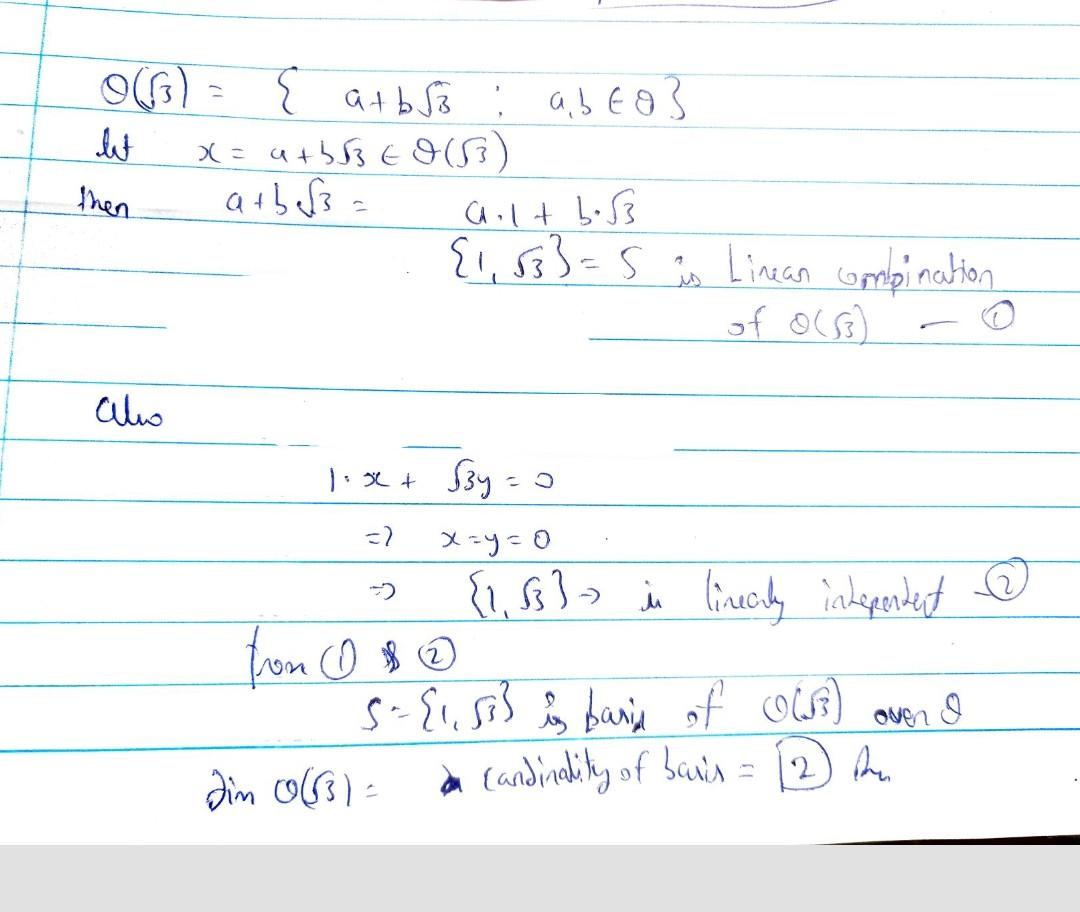 Q(√3) = { a+b√3 ; a,b ∈ Q}
let x = a+b√3 ∈ Q(√3)
then a+b√3 = a.1 + b.√3
{1, √3} = S is Linear combination
of Q(√3) — ①
Also
1.x + √3y = 0
=> x=y=0
=> {1, √3} → is linearly independent —②
from ① & ②
S = {1, √3} is basis of Q(√3) over Q
dim Q(√3) = cardinality of basis = 2 Ans